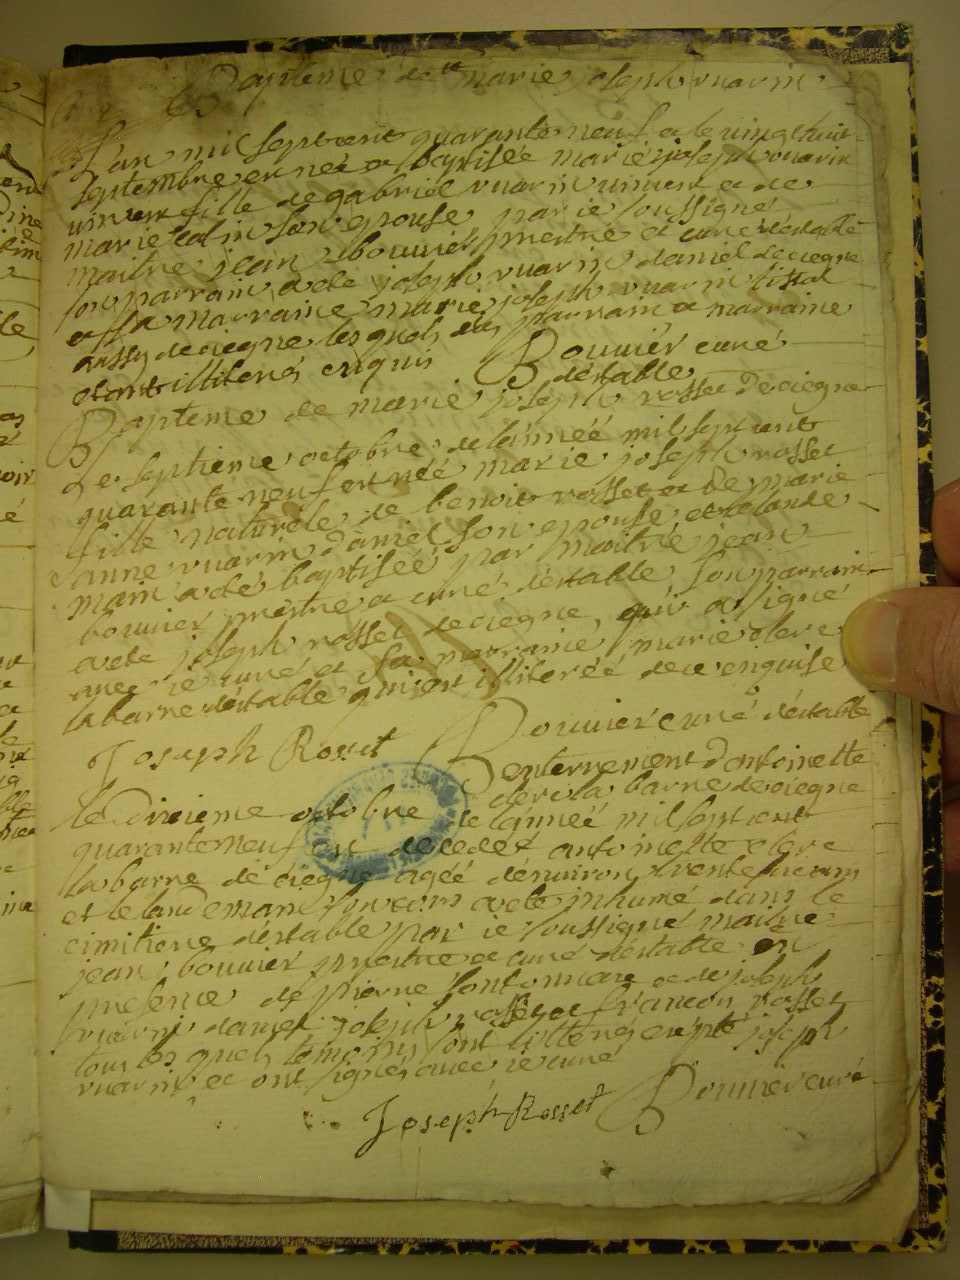 Bapteme de marie joseph vuarin
L'an mil septcent quarante neuf et le vingt huit
septembre est née et baptisée marie joseph vuarin
fille de gabriel vuarin vincent et de
marie colin son epouse par je soussigné
maitre jean bouvier prestre et curé destable
son parrain a eté joseph vuarin daniel de ciegne
et sa marraine marie joseph vuarin
aussy de ciegne lesquels parrain et marraine
etant illiterés enquis Bouvier curé
destable
Bapteme de marie joseph rosset de ciegne
Le septieme octobre de lannéé mil sept cent
quarante neuf est néé marie joseph rosset
fille naturele de benoit rosset et de marie
anne vuarin daniel son epouse et le lande
main a eté baptiséé par maitre jean
bouvier prestre et curé destable son parrain
a ete joseph rosset de ciegne, qui a signé
avec je curé et sa marraine marie clerc
labarne destable qui est illiteréé de ce enquise
Joseph Roset Bouvier curé destable
enterrement dantoinette
clerc la barne de ciegne
le dixieme octobre de lannéé mil sept cent
quarante neuf est decedéé antoinette clerc
labarne de ciegne agéé denviron trente
et le landemain son corps a eté inhumé dans le
cimitiere destable par je soussigné maitre
jean bouvier prestre et curé destable en
presence de pierre et de joseph
vuarin daniel joseph rosset et francois rosset
tous les quels temoins sont illiterés excepté joseph
vuarin et ont signés avec je curé
Joseph Rosset Bouvier curé